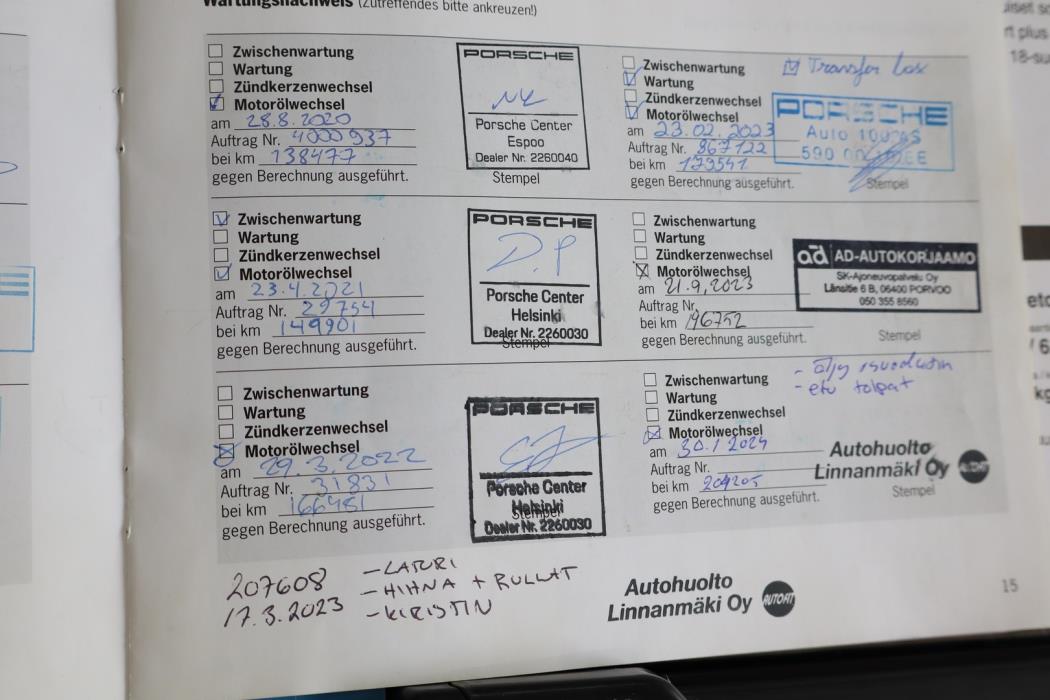 Wartungsnachweis (Zutreffendes bitte ankreuzen!)
Zwischenwartung
Wartung
Zündkerzenwechsel
Motorölwechsel
am 28.8.2020
Auftrag Nr. 4000937
bei km 138477
gegen Berechnung ausgeführt.
PORSCHE
Porsche Center
Espoo
Dealer Nr. 2260040
Stempel
Zwischenwartung
Wartung
Zündkerzenwechsel
Motorölwechsel
am 23.4.2021
Auftrag Nr. 29754
bei km 149901
gegen Berechnung ausgeführt.
PORSCHE
D.P
Porsche Center
Helsinki
Dealer Nr. 2260030
Stempel
Zwischenwartung
Wartung
Zündkerzenwechsel
Motorölwechsel
am 29.3.2022
Auftrag Nr. 31831
bei km 166481
gegen Berechnung ausgeführt.
PORSCHE
Porsche Center
Helsinki
Stempel
Dealer Nr. 2260030
Zwischenwartung
Wartung
Zündkerzenwechsel
Motorölwechsel
am 23.02.2023
Auftrag Nr. 867122
bei km 179541
gegen Berechnung ausgeführt.
Transfer box
PORSCHE
Auto
590
Stempel
Zwischenwartung
Wartung
Zündkerzenwechsel
Motorölwechsel
am 21.9,2023
Auftrag Nr.
bei km 196752
gegen Berechnung ausgeführt.
ad AD-AUTOKORJAAMO
SK-Ajoneuvopalvelu Oy
Länsitie 6 B, 06400 PORVOO
050 355 8560
Stempel
Zwischenwartung
Wartung
Zündkerzenwechsel
Motorölwechsel
am 30.1.2024
Auftrag Nr.
bei km 204205
gegen Berechnung ausgeführt.
- etu tolpat
Autohuolto
Linnanmäki Oy
Stempel
207608
17.3.2023
- LATURI
- HIHNA + RULLAT
- KIRISTIN
Autohuolto
Linnanmäki Oy AUTOFIT
15
rt plus